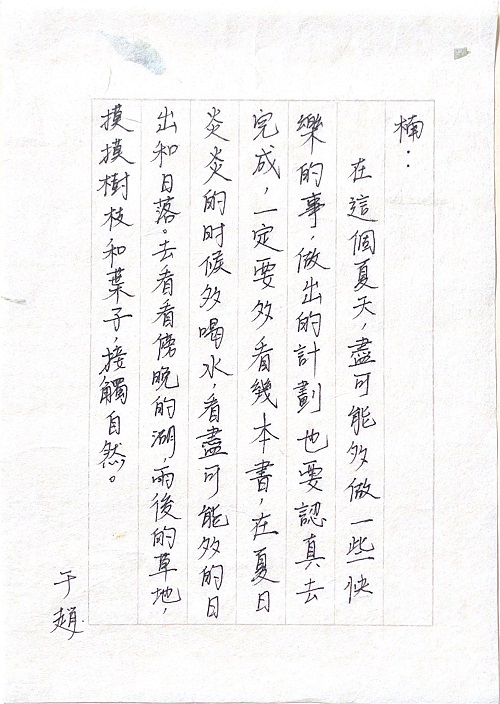 楠：
在這個夏天，盡可能多做一些快
樂的事，做出的計劃也要認真去
完成，一定要多看幾本書，在夏日
炎炎的时候多喝水，看盡可能多的日
出和日落。去看看傍晚的湖，雨後的草地，
摸摸樹枝和葉子，接觸自然。
于趙